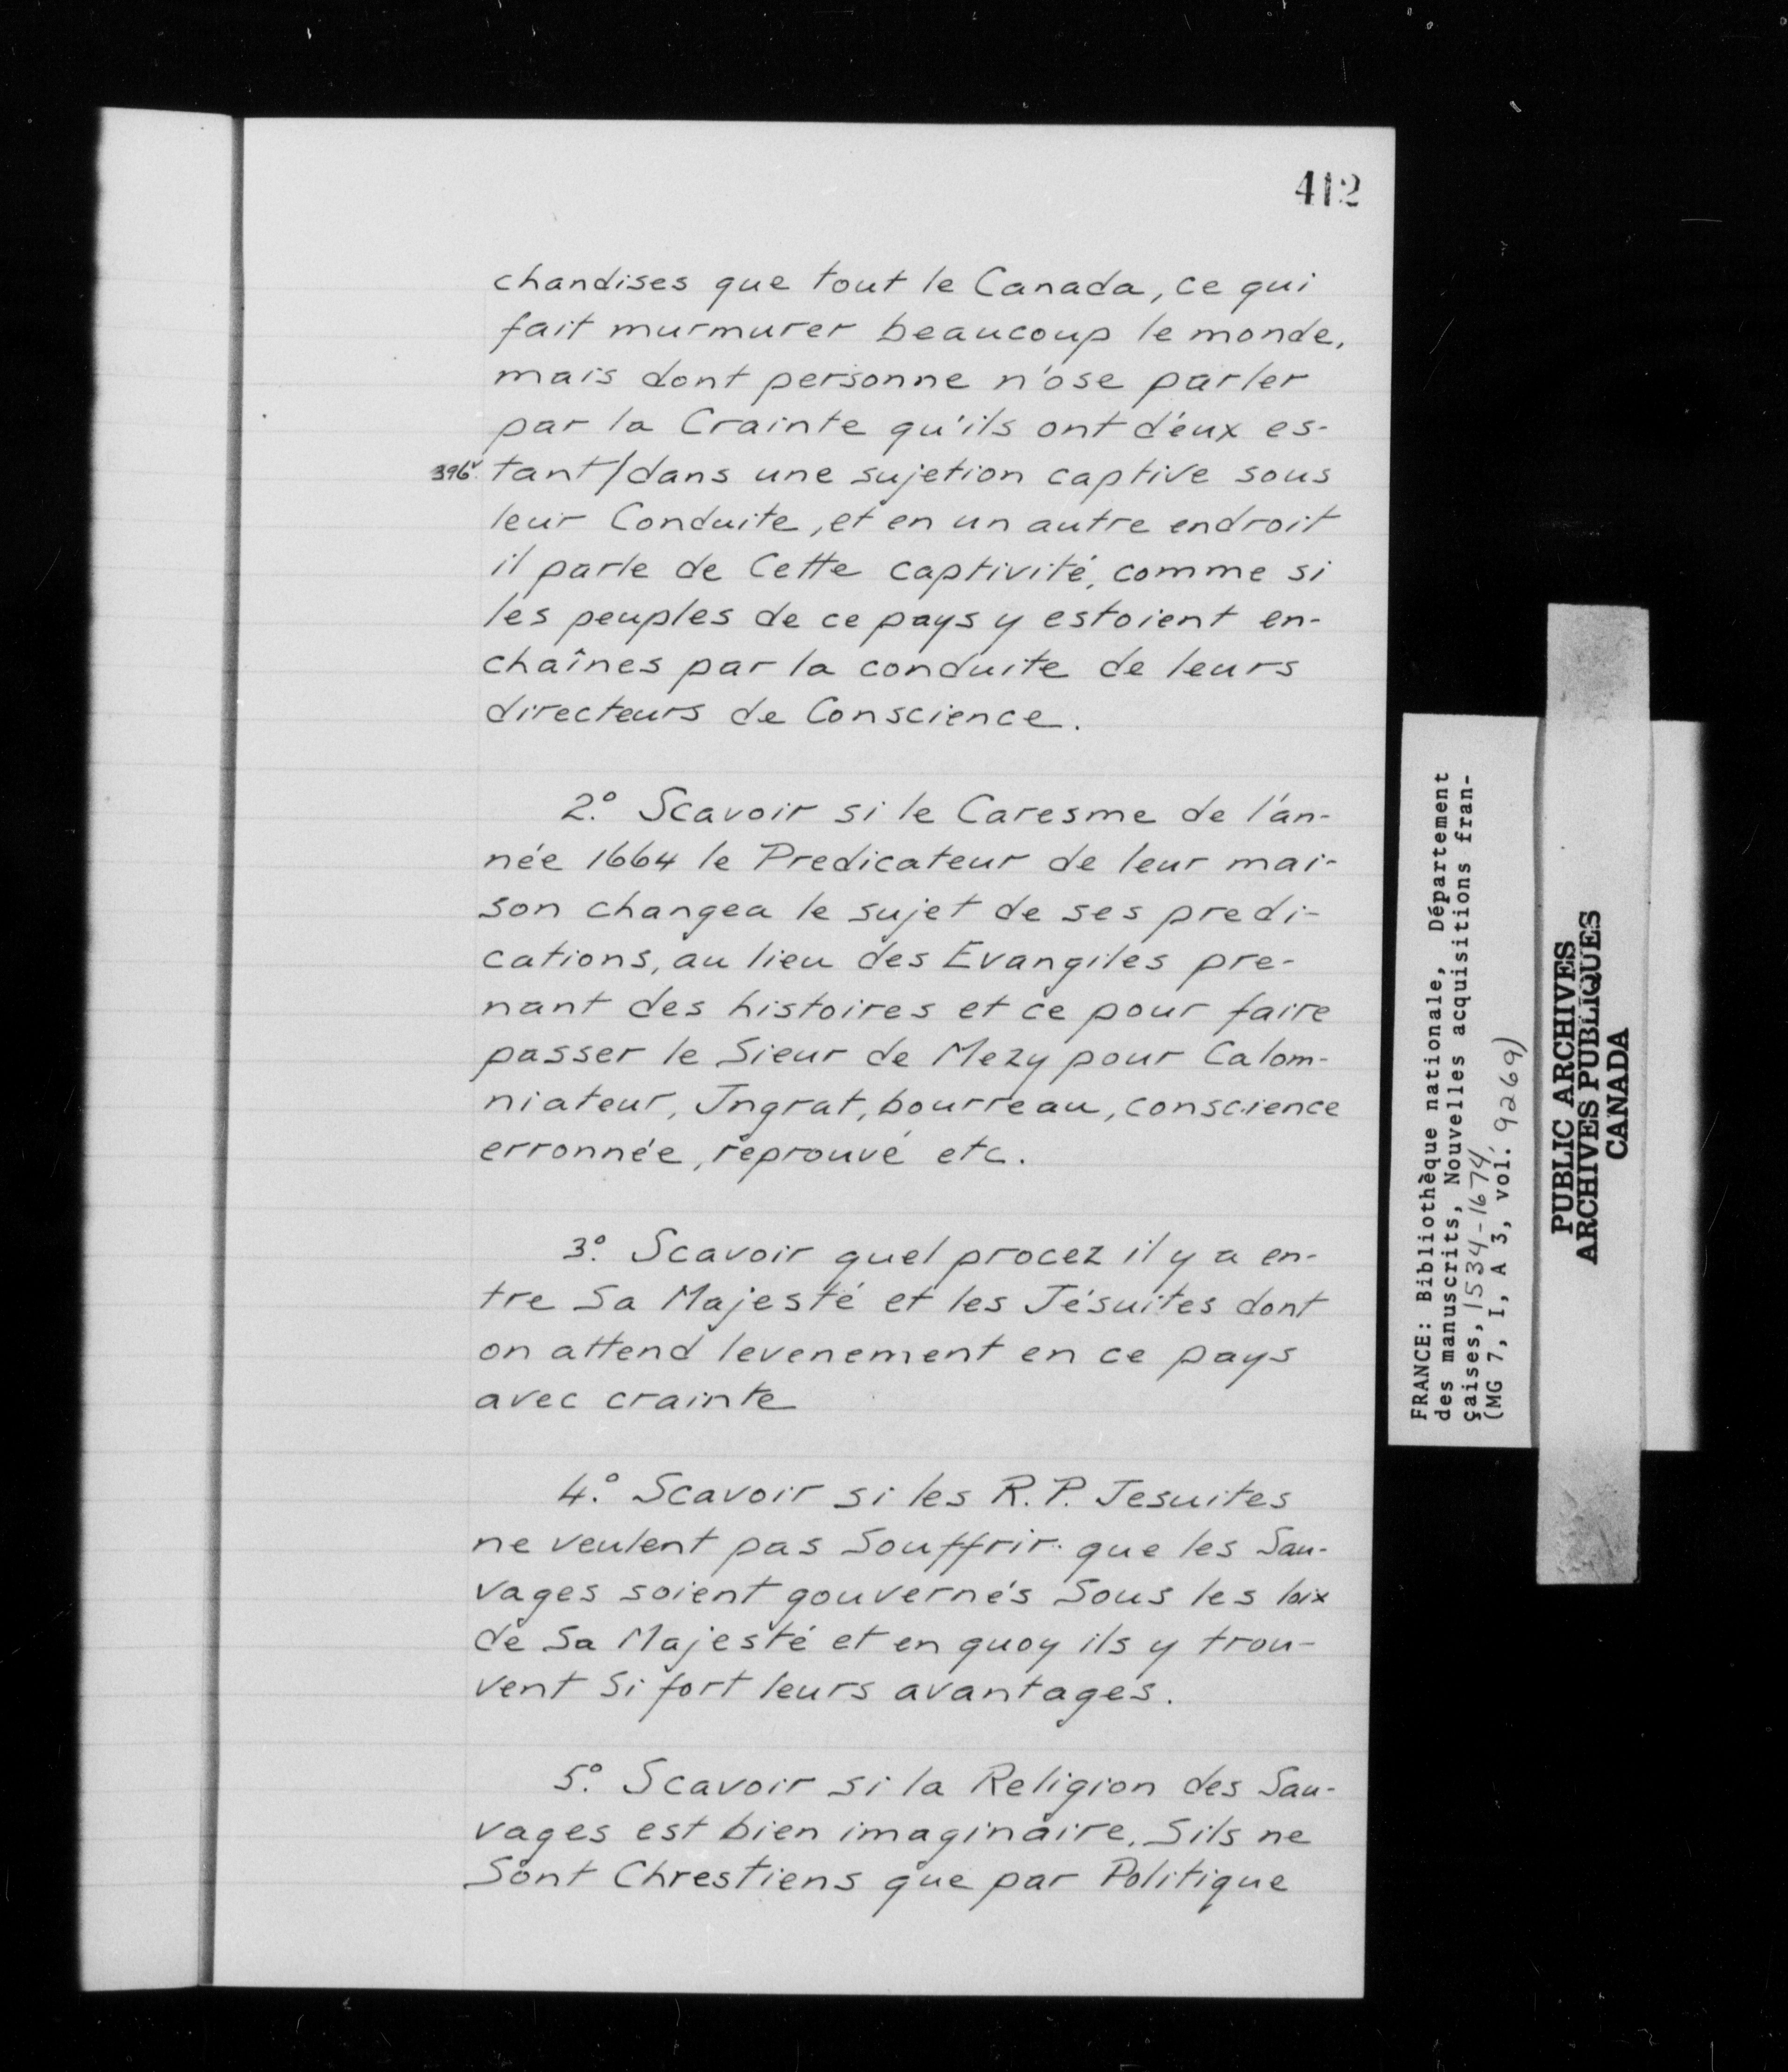 412
chandises que tout le Canada, ce qui
fait murmurer beaucoup le monde,
mais dont personne n'ose parler
par la Crainte qu'ils ont d'eux es-
396v. tant/dans une sujetion captive sous
leur Conduite, et en un autre endroit
il parle de Cette captivité, comme si
les peuples de ce pays y estoient en-
chaînes par la conduite de leurs
directeurs de Conscience.
2.° Scavoir si le Caresme de l'an-
née 1664 le Predicateur de leur mai-
son changea le sujet de ses predi-
cations, au lieu des Evangiles pre-
nant des histoires et ce pour faire
passer le Sieur de Mezy pour Calom-
niateur, Jngrat, bourreau, conscience
erronnée, reprouvé etc.
3.° Scavoir quel procez il y a en-
tre Sa Majesté et les Jésuites dont
on attend levenement en ce pays
avec crainte
4.° Scavoir si les R.P. Jesuites
ne veulent pas Souffrir que les Sau-
vages soient gouvernés Sous les loix
de Sa Majesté et en quoy ils y trou-
vent Si fort leurs avantages.
5.° Scavoir si la Religion des Sau-
vages est bien imaginaire, Sils ne
Sont Chrestiens que par Politique
FRANCE: Bibliothèque nationale, Département
des manuscrits, Nouvelles acquisitions fran-
çaises, 1534-1674.
(MG 7, I, A 3, vol. 9269)
PUBLIC ARCHIVES
ARCHIVES PUBLIQUES
CANADA